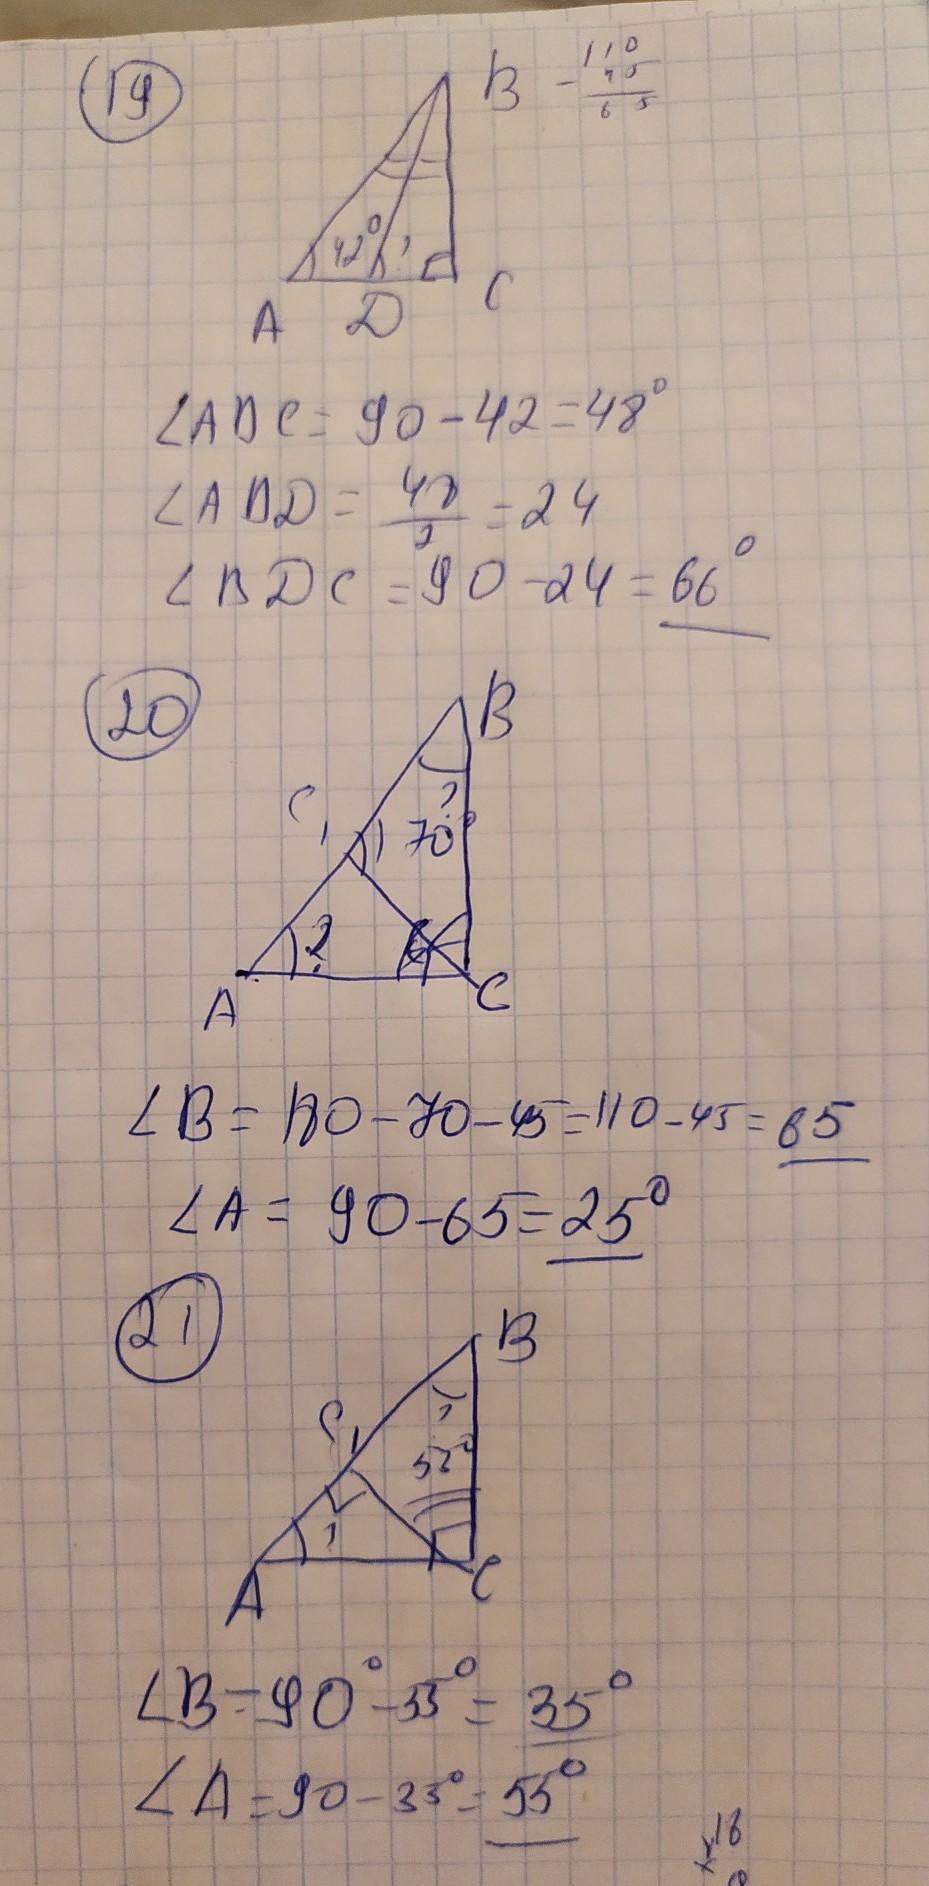 19
B
110
45
65
42° ?
A D C
∠ABC = 90 - 42 = 48°
∠ABD = 48/2 = 24
∠BDC = 90 - 24 = 66°
20
B
C₁
?
70°
?
A
C
∠B = 180 - 70 - 45 = 110 - 45 = 65
∠A = 90 - 65 = 25°
21
B
C₁
?
?
A
C
∠B = 90° - 55° = 35°
∠A = 90 - 35° = 55°
18